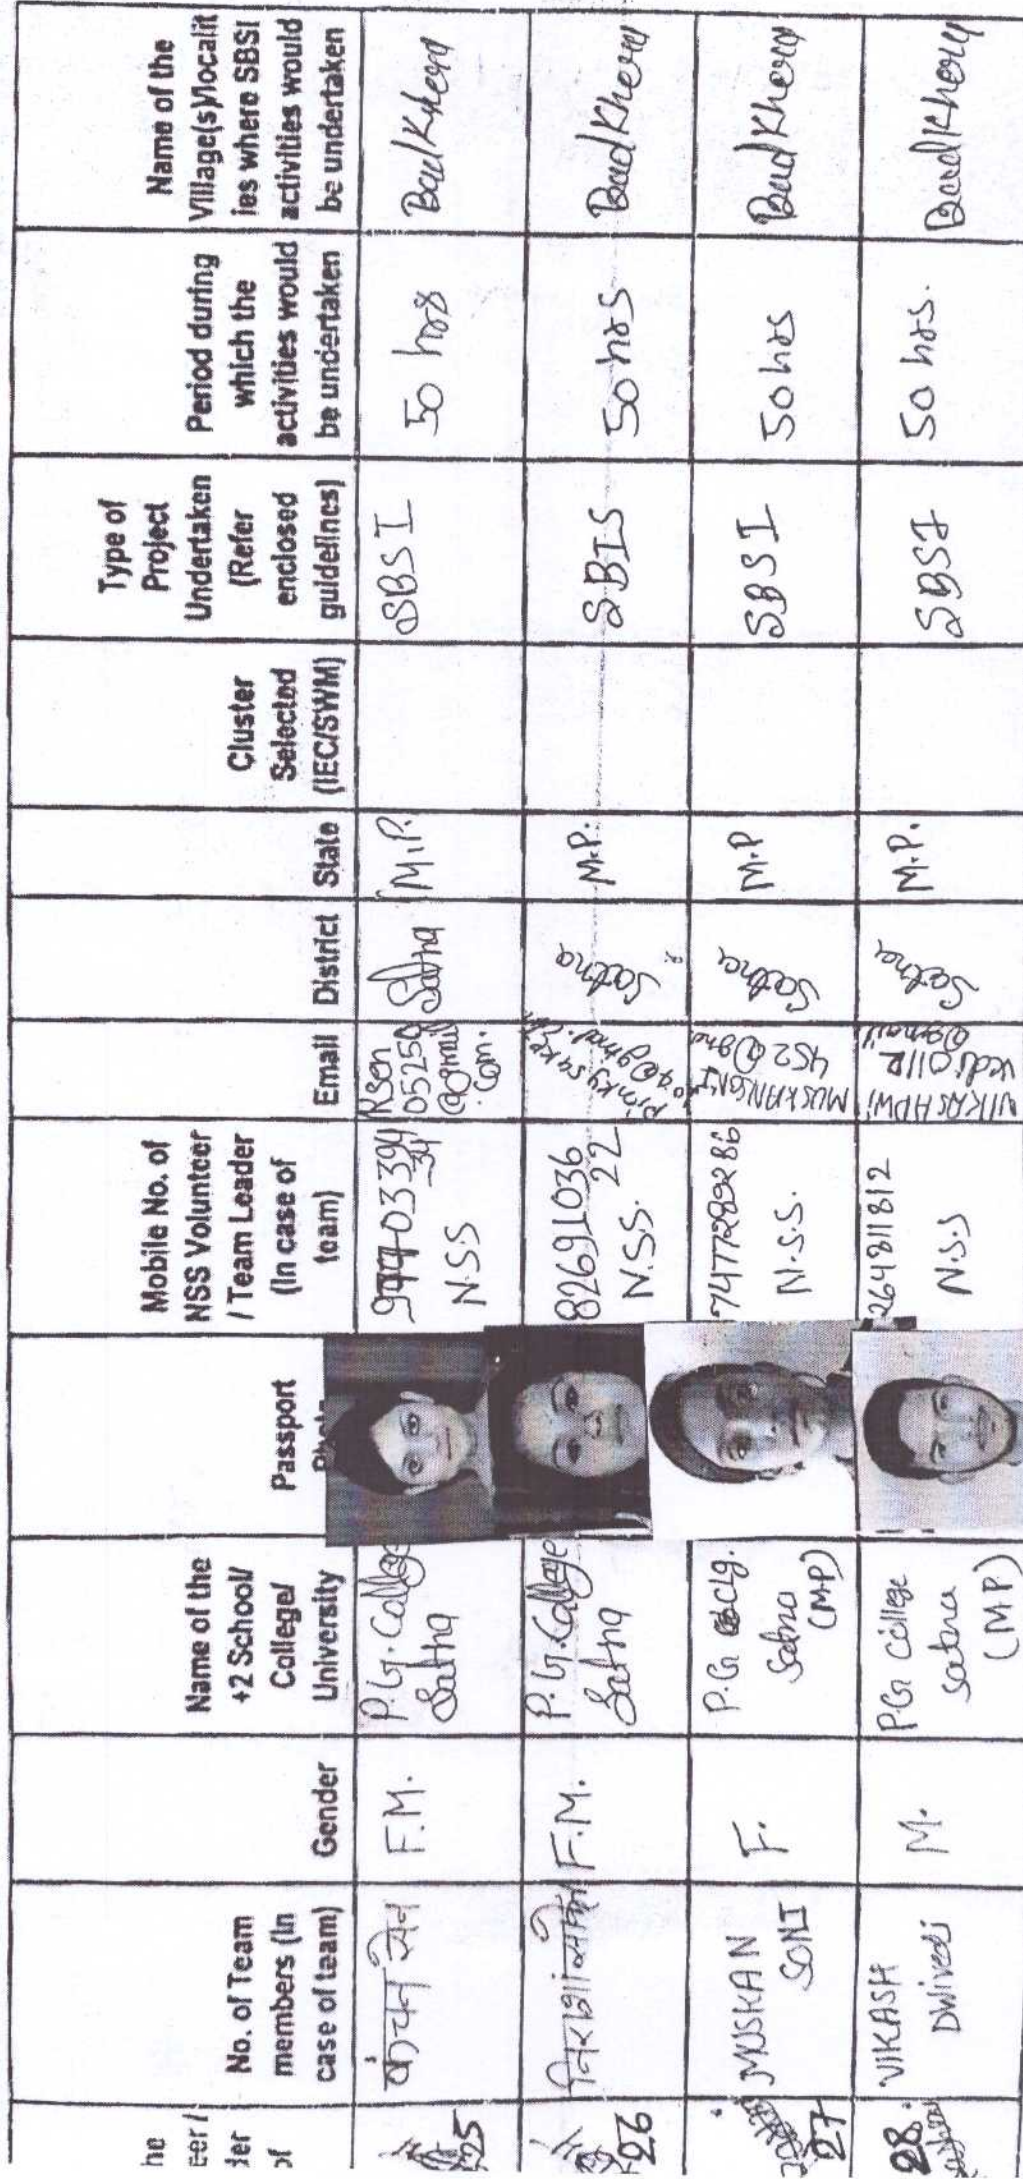 he
eer /
der
of
No. of Team
members (In
case of team)
Gender
Name of the
+2 School/
College/
University
Passport
Mobile No. of
NSS Volunteer
/ Team Leader
(In case of
team)
Email
District
State
Cluster
Selected
(IEC/SWM)
Type of
Project
Undertaken
(Refer
enclosed
guidelines)
Period during
which the
activities would
be undertaken
Name of the
Village(s)/localit
ies where SBSI
activities would
be undertaken
25
कंचन सेन
F.M.
P.G. College
Satna
N.S.S
Rsen
05250
@gmail
.com.
Satna
M.P.
SBSI
50 hrs
BadKhera
26
F.M.
P.G. College
Satna
82691036
22
N.S.S.
Satna
M.P.
SBIS
50 hrs
BadKhera
27
MUSKAN
SONI
F.
P.G clg.
Satna
(M.P)
7477289286
N.S.S.
MUSKANSONI
452@gma
Satna
M.P
SBSI
50 hrs
BadKhera
28.
VIKASH
Dwivedi
M.
PG College
Satna
(M.P)
264811812
N.S.S
VIKASHDWI
vedi011R
@gmail
Satna
M.P.
SBSI
50 hrs.
BadKhera